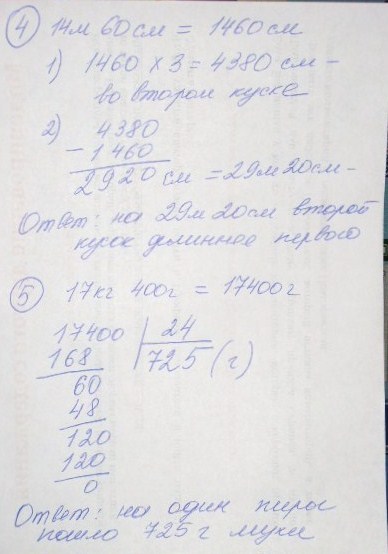 4 14м 60см = 1460см
1) 1460 х 3 = 4380 см -
во втором куске
2) 4380
- 1460
2920 см = 29м 20см -
Ответ: на 29м 20см второй
кусок длиннее первого
5 17кг 400г = 17400г
17400 24
168 725 (г)
60
48
120
120
0
Ответ: на один пирог
пошло 725 г муки